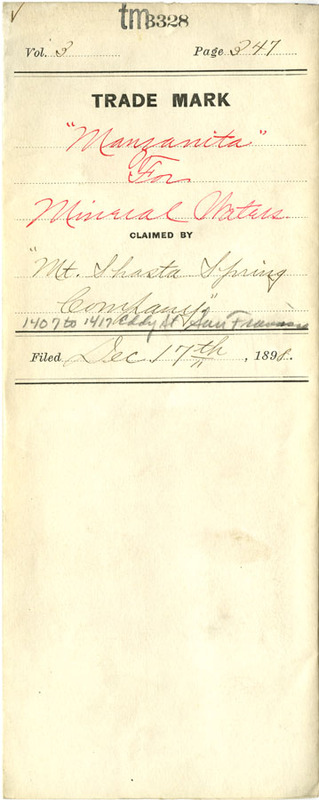 tm3328
Vol. 3 Page 247
TRADE MARK
"Manzanita"
For
Mineral Waters
CLAIMED BY
"Mt. Shasta Spring
Company"
1407 to 1417 Eddy St San Francisco
Filed Dec 17th, 1898.